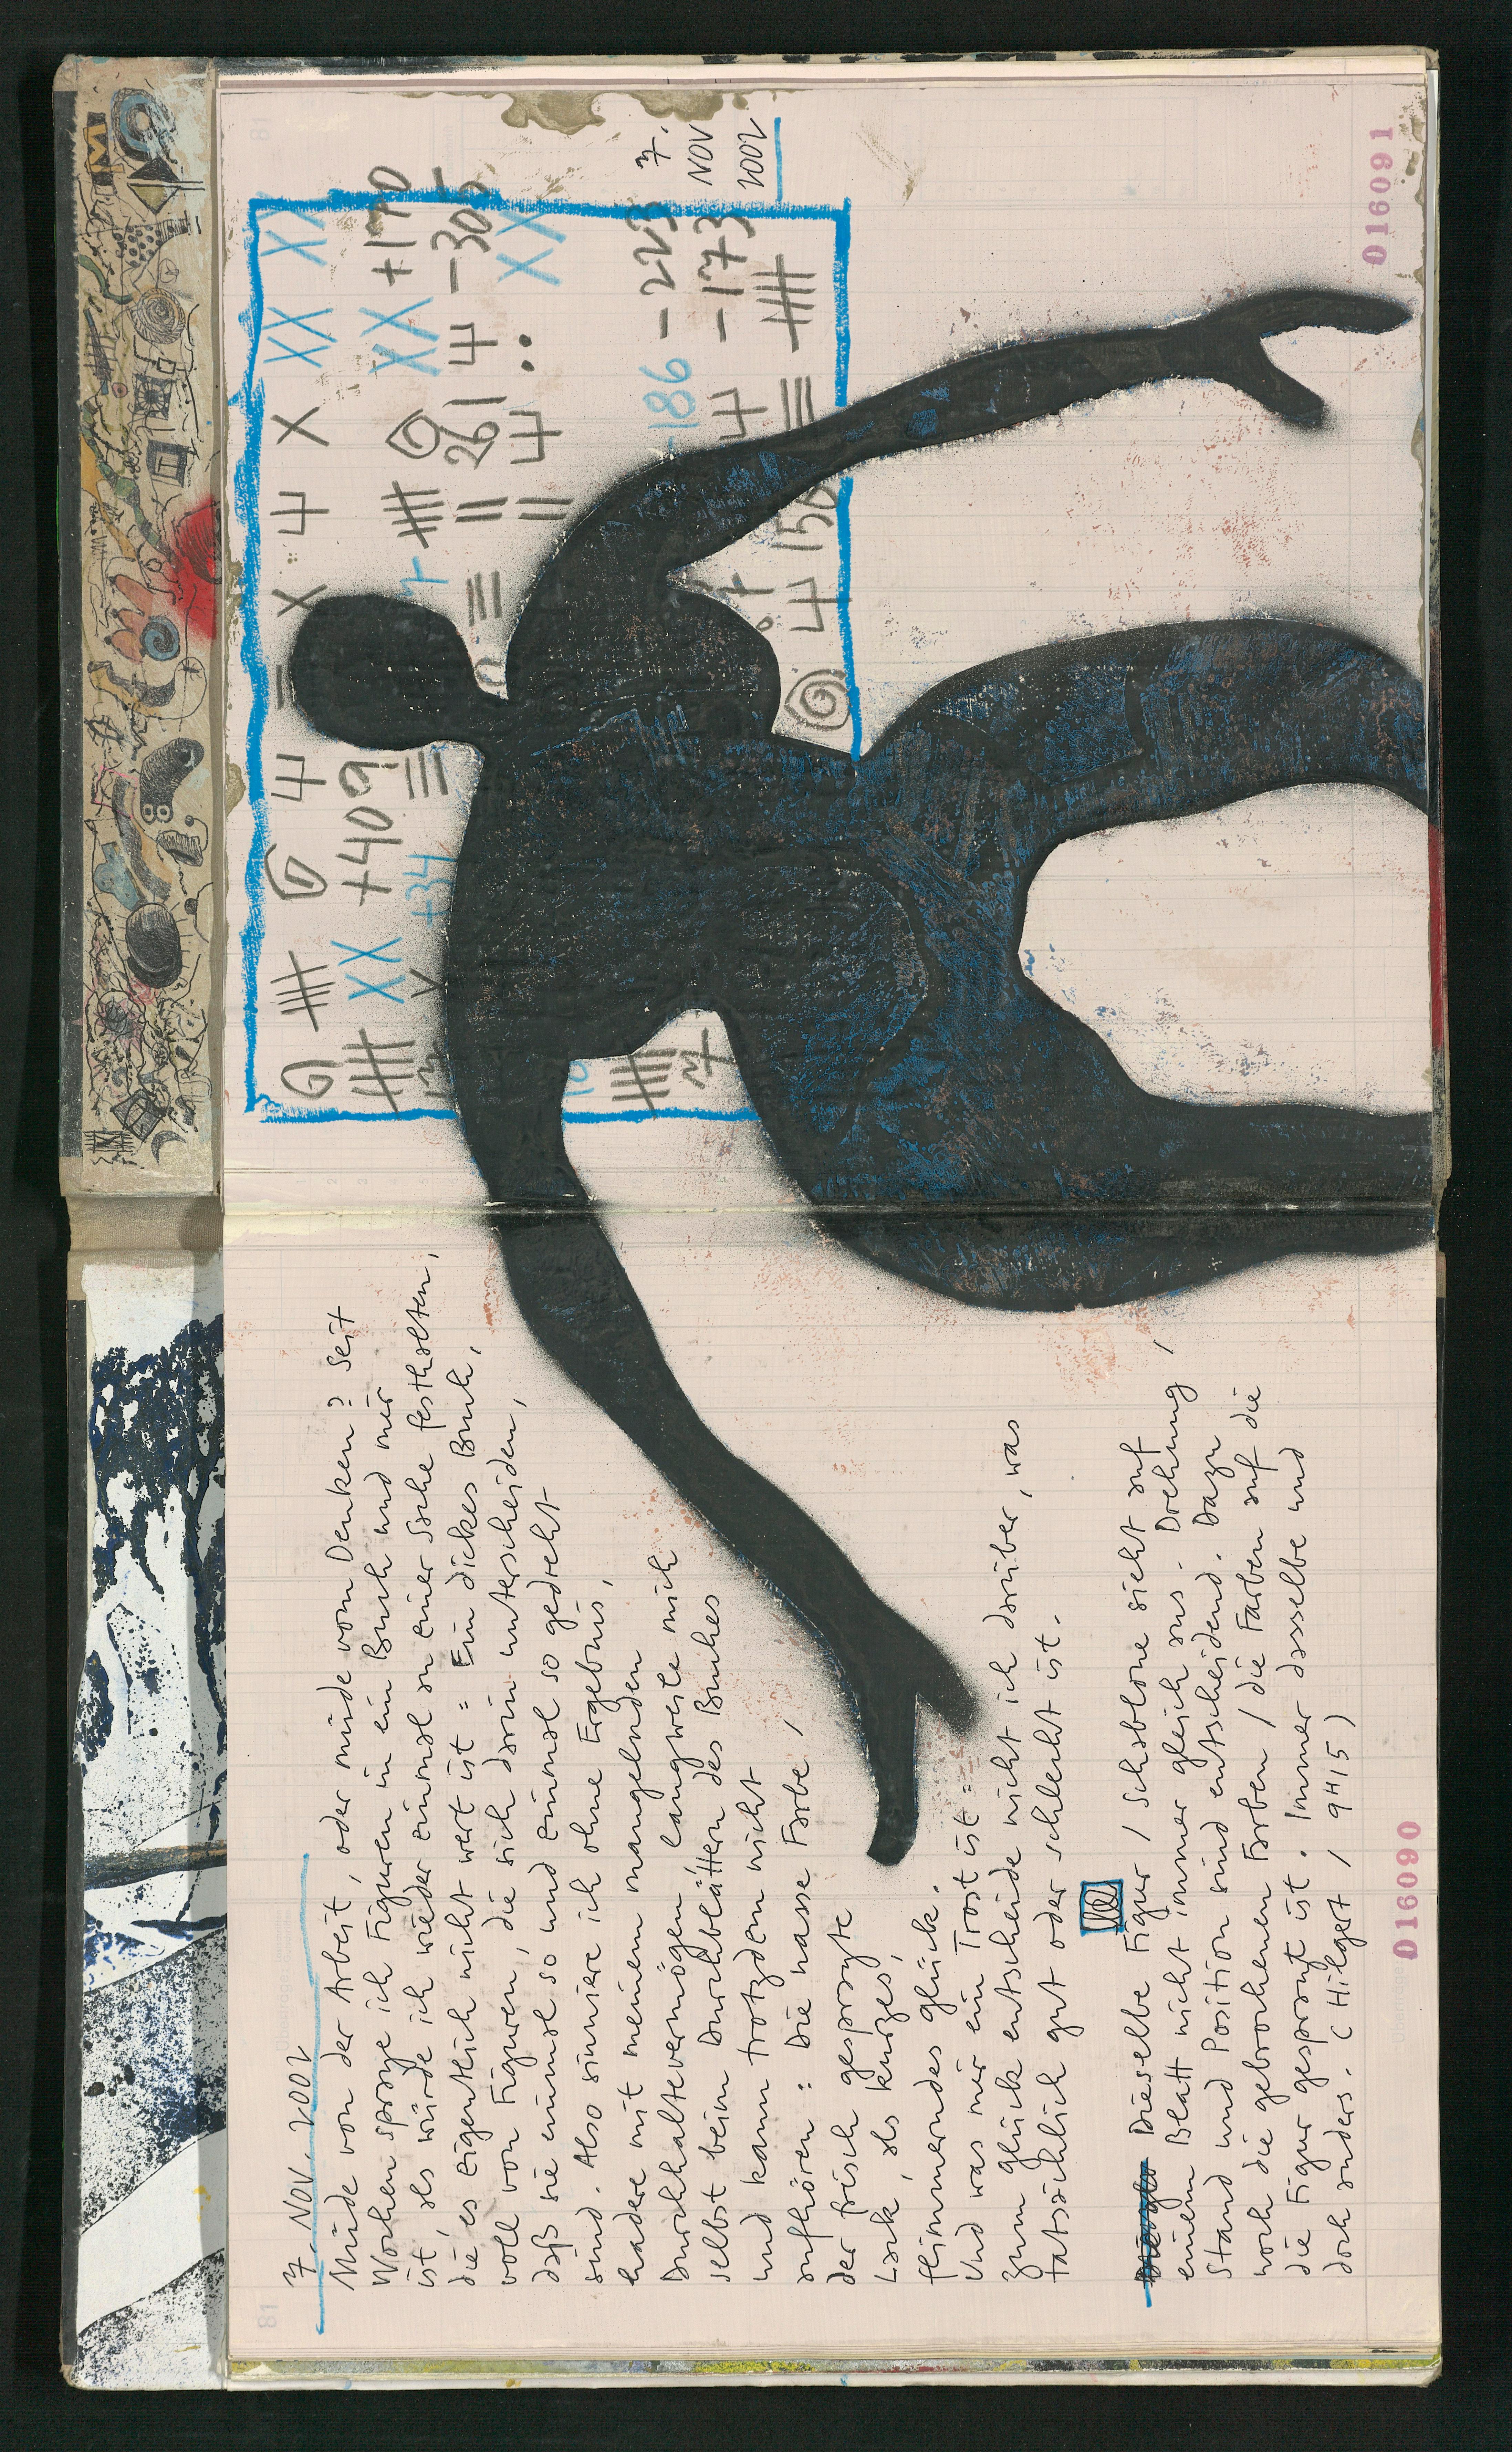 7. NOV. 2002
Müde von der Arbeit, oder müde vom Denken? Seit
Wochen spraye ich Figuren in ein Buch und mir
ist, als würde ich wieder einmal an einer Sache festhalten,
die es eigentlich nicht wert ist = Ein dickes Buch,
voll von Figuren, die sich darin unterscheiden,
daß sie einmal so und einmal so gedreht
sind. Also sinniere ich ohne Ergebnis,
hadere mit meinem mangelnden
Durchhaltevermögen, langweile mich
selbst beim Durchblättern des Buches
und kann trotzdem nicht
aufhören: Die nasse Farbe,
der frisch gesprayte
Lack, als kurzes,
flimmerndes Glück.
Und was mir ein Trost ist =
Zum Glück entscheide nicht ich darüber, was
tatsächlich gut oder schlecht ist.
Dieselbe Figur / Schablone sieht auf
einem Blatt nicht immer gleich aus. Drehung /
Stand und Position sind entscheidend. Dazu
noch die gebrochenen Farben / die Farben auf die
die Figur gesprayt ist. Immer dasselbe und
doch anders. (Hilgert / 9415)
016090
81
X X XX XX
+409 XX +170
XX +34 261 -305
XX
-186 -223
-173
7.
NOV
2002
016091